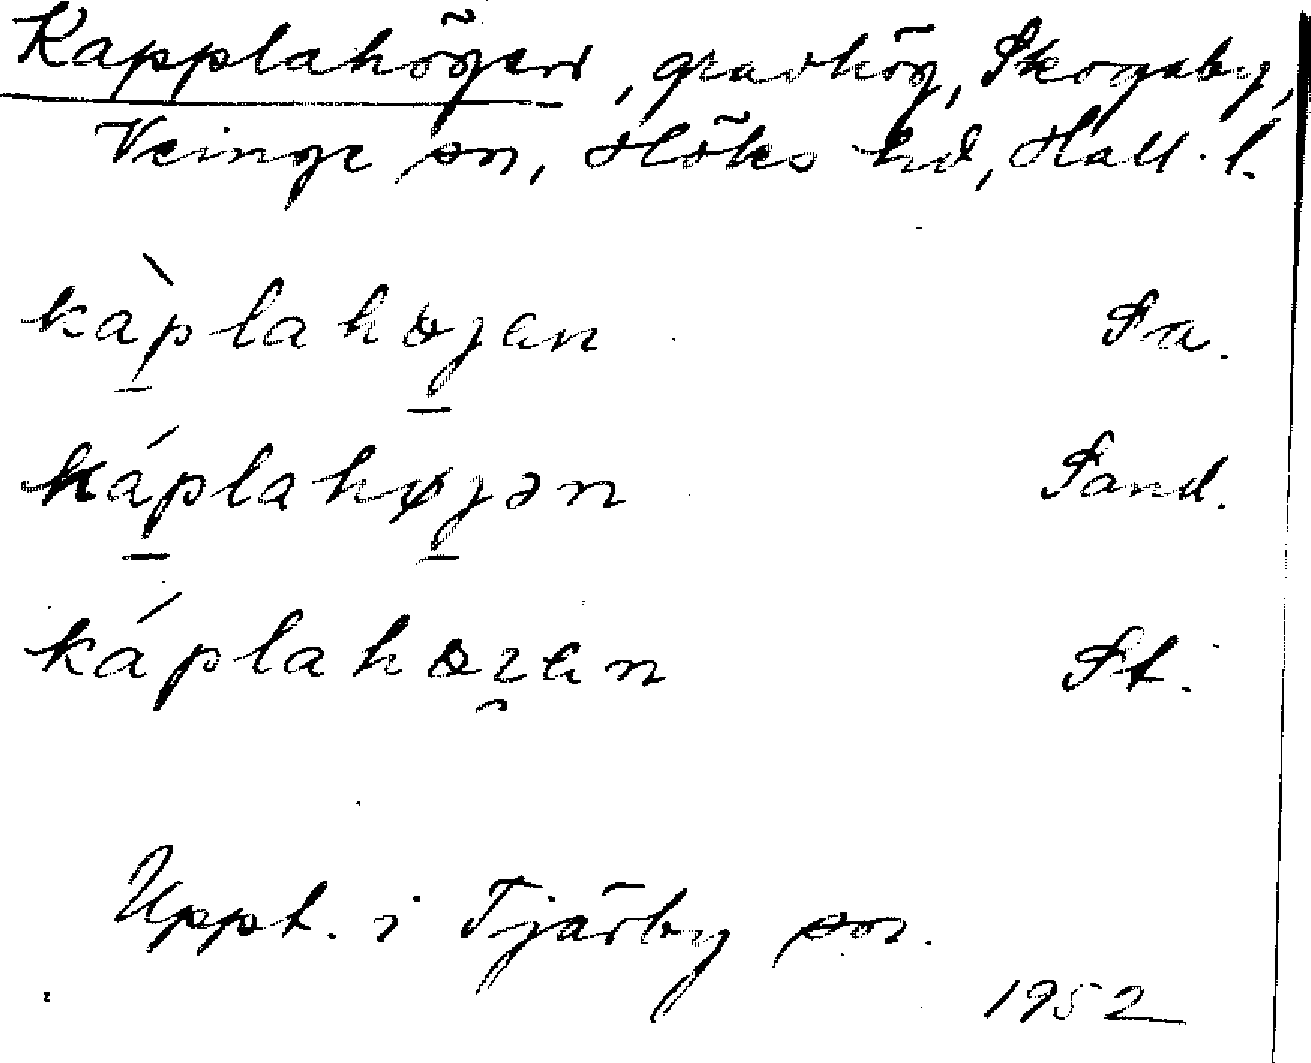 Kapplahögen, gravhög, Skogaby,
Veinge sn, Höks hd, Hall. l.
kàplahøjen Sa.
káplahøjən Sand.
káplahøzen St.
Uppt. i Tjärby sn.
1952